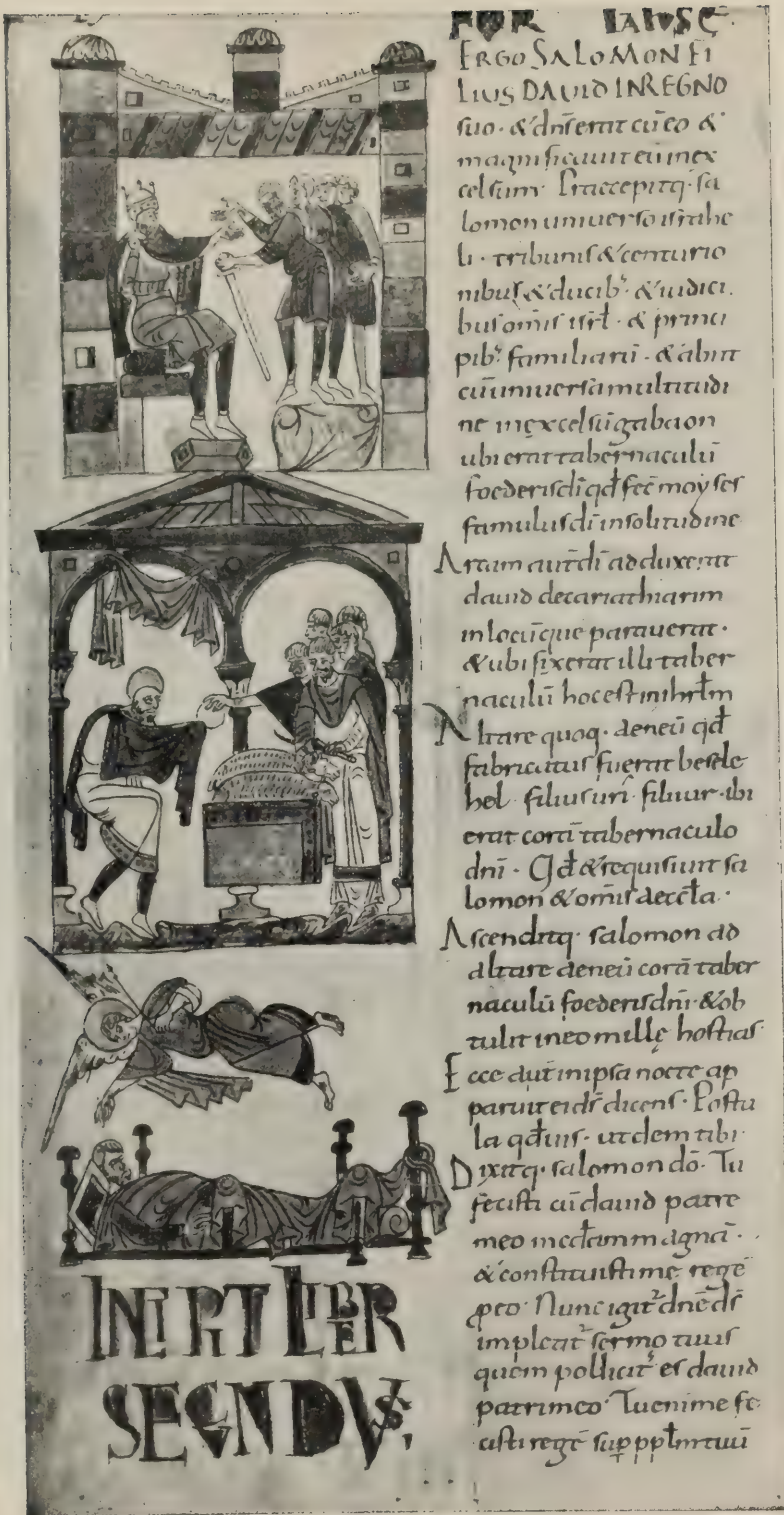 INCIPIT LIBER
SECUNDUS;
FOR TATUS Ē
ERGO SALOMON FI
LIUS DAVID IN REGNO
suo · & dn̄s erat cū eo &
magnificavit eū inex
celsum · Praecepitq· sa
lomon universo israhe
li · tribunis & centurio
nibus & ducib· & iudici
bus omis isrl̄ · & princi
pib· familiarū · & abiit
cū universa multitudi
ne in excelsū gabaon
ubi erat tabernaculū
foederis dī qd̄ fec̄ moyses
famulus dī in solitudine
Arcam aut̄ dī adduxerat
david de cariathiarim
in locū que paraverat ·
& ubi fixerat illi taber
naculū hoc est in hrl̄m
Altare quoq· aeneū qd̄
fabricatus fuerat besele
hel filius uri filii ur · ibi
erat corā tabernaculo
dn̄i · Qd̄ & requisivit sa
lomon & omis aeccl̄a ·
Ascenditq· salomon ad
altare aeneū corā taber
naculū foederis dn̄i · & ob
tulit in eo mille hostias
Ecce aut̄ in ipsa nocte ap
paruit ei ds̄ dicens · Postu
la qd̄ vis · ut dem tibi
Dixitq· salomon dō · Tu
fecisti cū david patre
meo mcdiam magnā ·
& constituisti me regē
ꝓ eo · Nunc igit̄ dn̄e ds̄
impleat̄ sermo tuus
quem pollicit̄ es david
patri meo · Tu enim me fe
cisti regē sup ppl̄m tuū